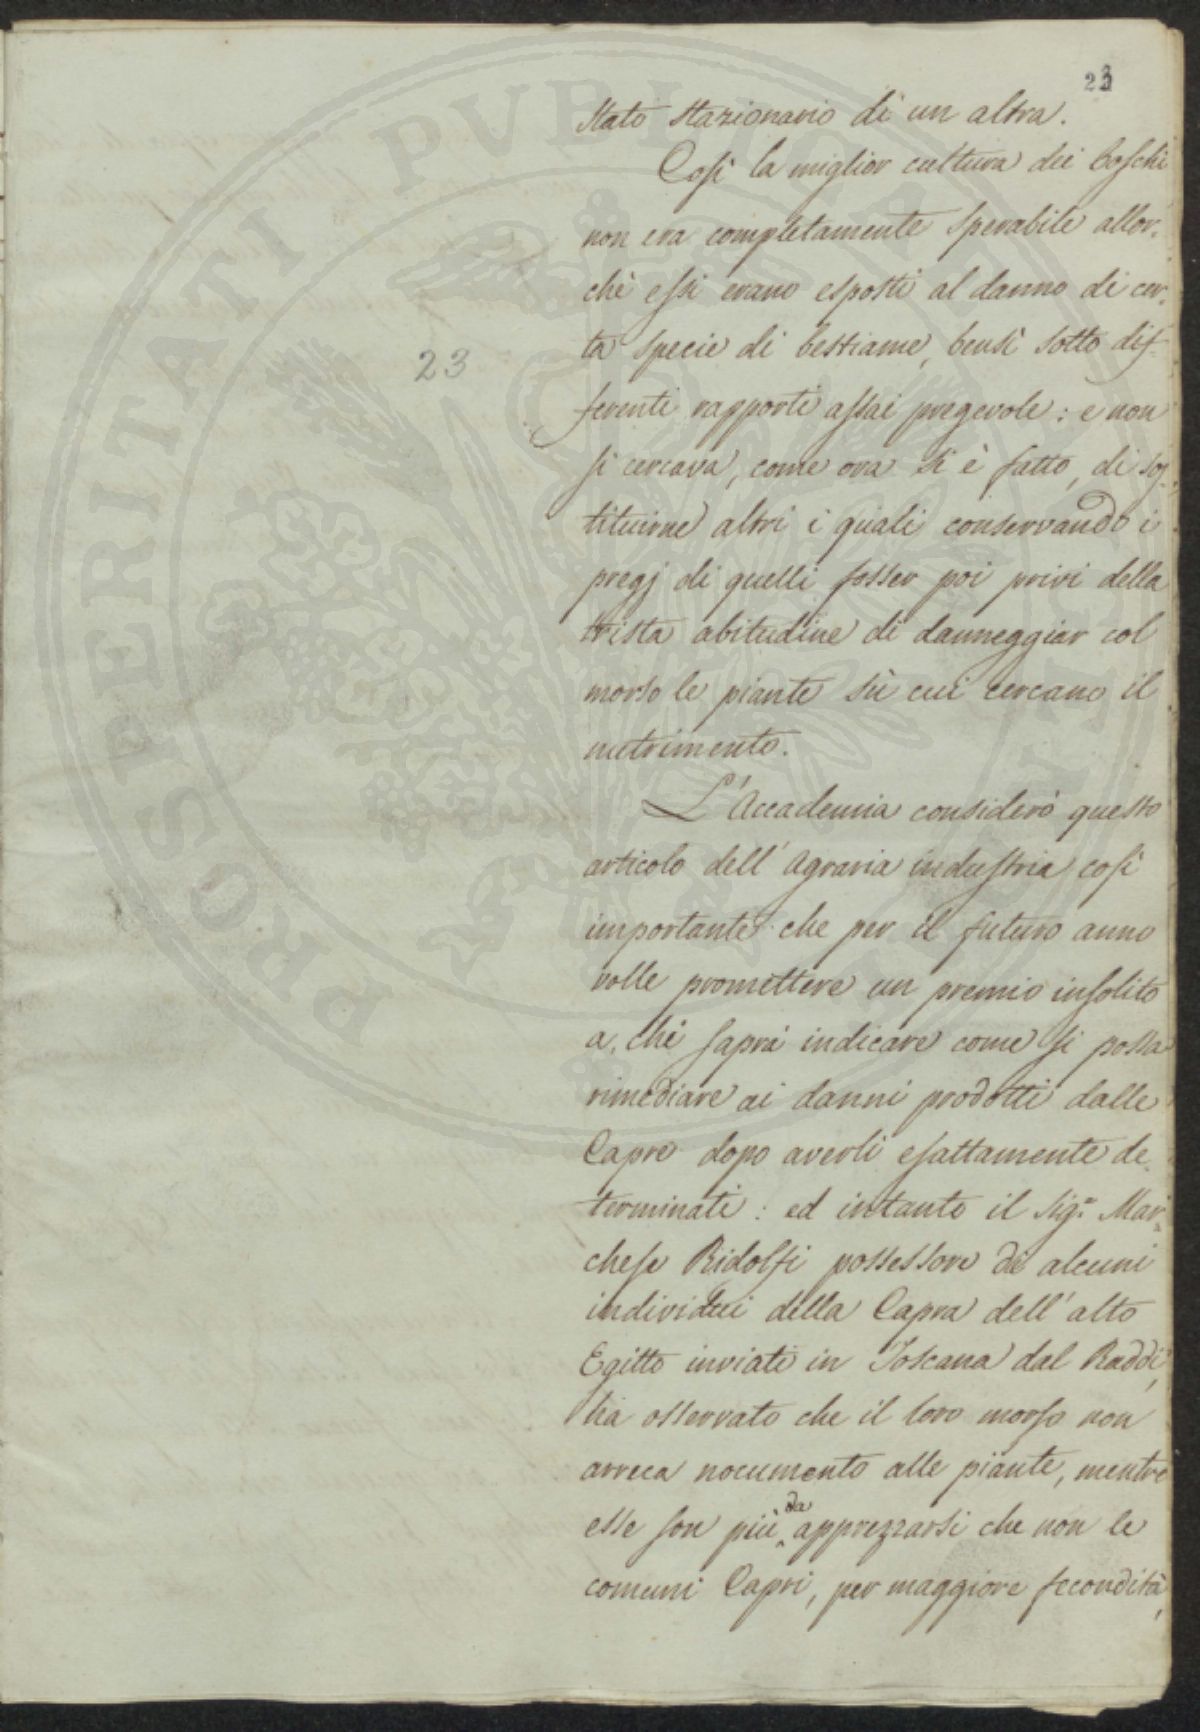 23
stato stazionario di un altra.
Così la miglior cultura dei boschi
non era completamente sperabile allor-
chè essi erano esposti al danno di cer-
ta specie di bestiame, bensì sotto dif-
23
ferenti rapporti assai pregevole: e non
si cercava, come ora si è fatto, di sos-
tituirne altri i quali conservando i
pregj di quelli fosser poi privi della
trista abitudine di danneggiar col
morso le piante sù cui cercano il
nutrimento.
L'Accademia considerò questo
articolo dell'Agraria industria così
importante che per il futuro anno
volle promettere un premio insolito
a chi saprà indicare come si possa
rimediare ai danni prodotti dalle
Capre dopo averli esattamente de-
terminati: ed intanto il Sigr. Mar-
chese Ridolfi possessore di alcuni
individui della Capra dell'alto
Egitto inviati in Toscana dal Raddi,
ha osservato che il loro morso non
arreca nocumento alle piante, mentre
esse son più da apprezzarsi che non le
comuni Capri, per maggiore fecondità,
PROSPERITATI PVBLICAE